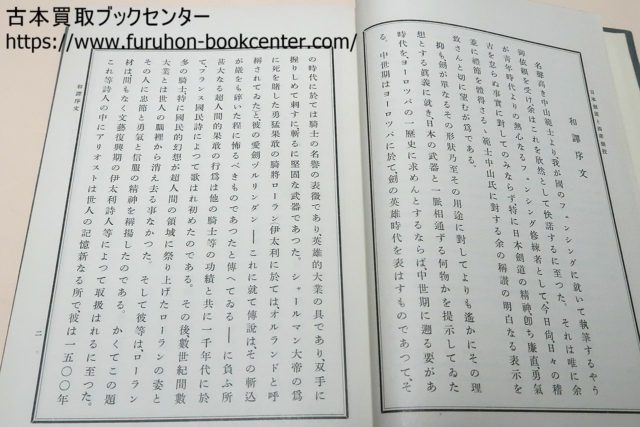 古本買取ブックセンター
https://www.furuhon-bookcenter.com/
和譯序文
名聲高き中山範士より我が國のフェンシングに就いて執筆するやう
御依賴を受け余はこれを欣然として快諾するに至つた。それは唯に余
が靑年時代よりの熱心なるフェンシング修棟者として、今日尙、日々の稽
古を怠らぬ事實に對してのみならず特に日本劍道の精神、卽ち廉直、勇氣
並に禮節を體得さるゝ範士中山氏に對する余の稱讃の明白なる表示を
致さんと切に望むが爲である。
抑も劍が單なるその形狀乃至その用途に對してよりも遙かにその理
想とする眞義に就き日本の武器と一脈相通ずる何物かを提示してゐた
時代を、ヨーロッパの一歷史に求めんとするならば、中世期に遡る要があ
る。中世期はヨーロッパに於て、劍の英雄時代を表はすものであつて、そ
の時代に於ては騎士の名譽の表徵であり、英雄的大業の具であり、双手に
握りしめて刺すに斬るに堅固な武器であつた。シャールマン大帝の爲
に死を賭した勇猛果敢の騎將ローラン、伊太利に於ては、オルランドと呼
稱されてゐたと、彼の愛劍ヅルリンダン――これに就て傳說は、その斬込
が巖をも碎いた程に怖るべきものであつたと傳へてゐる――に負ふ所
甚大なる超人間的果敢の行爲は他の騎士等の功績と共に一千年代に於
て、フランス國民詩によつて歌はれ初めたのである。その後、數世紀間數
多の騎士特に國民的幻想が超人間の領域に祭り上げたローランの姿と
大業とは世人の腦裡から消え去る事なかつた。そして彼等は、ローラン
その人に忠節と勇氣と信服の精神を稱揚したのである。かくてこの題
材は間もなく文藝復興期の伊太利詩人等によつて取扱はれるに至つた。
これ等詩人の中にアリオストは世人の記憶新なる所で、彼は一五〇〇年
和譯序文
二